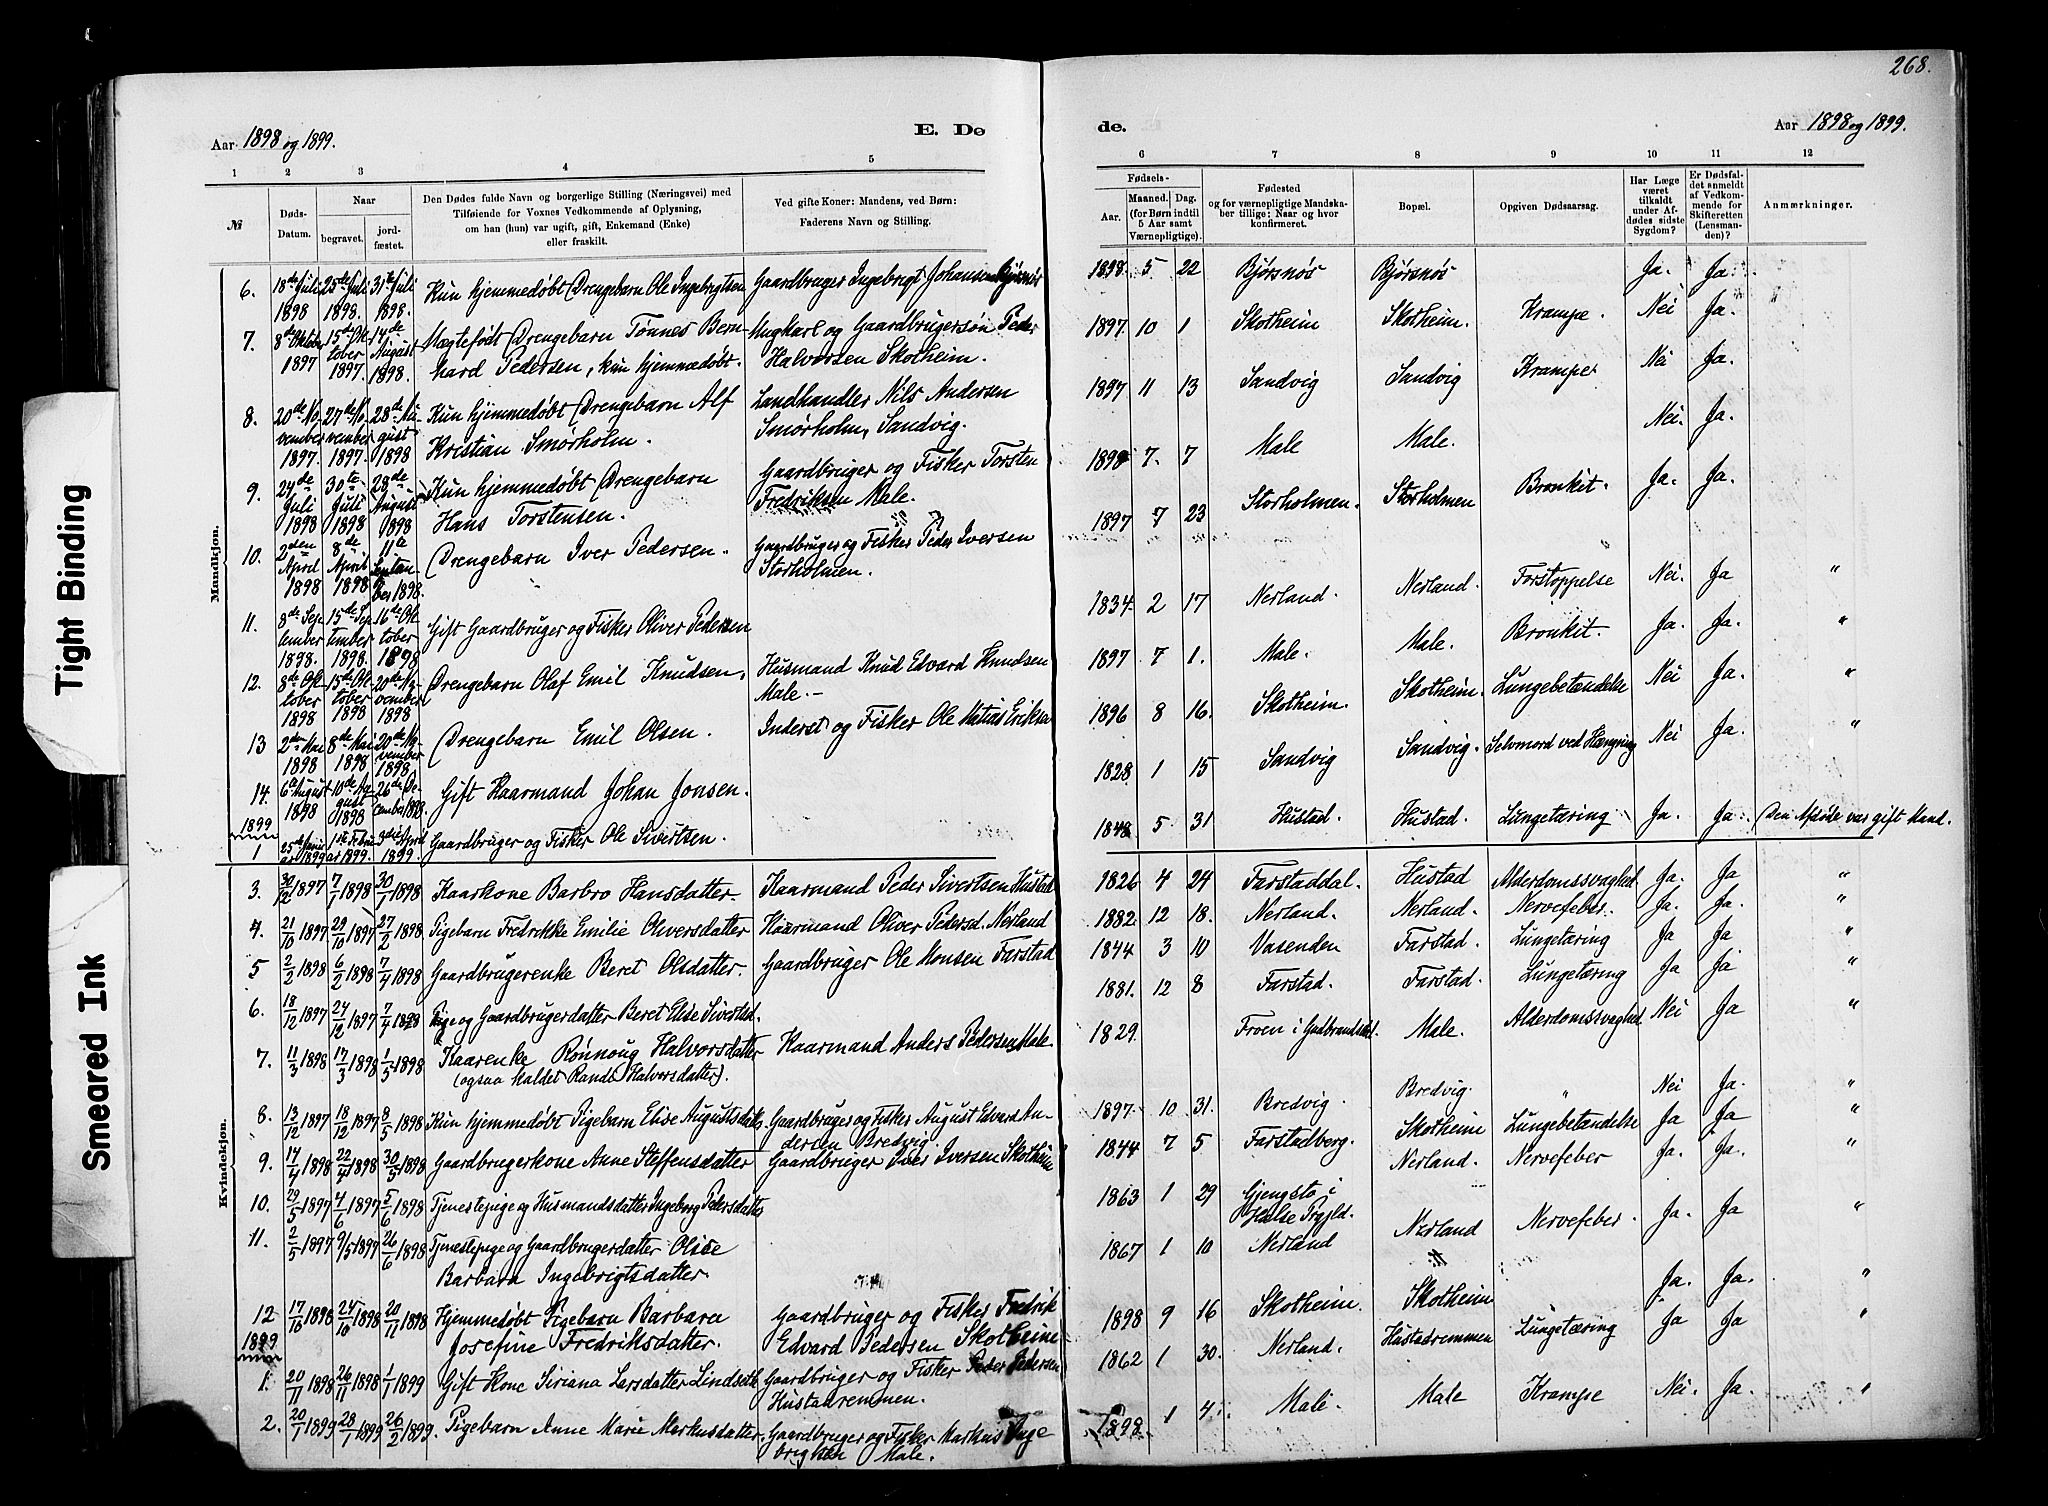 268.
Aar 1898 og 1899.
E. Dø
de.
Aar 1898 og 1899.
1 2 3 4 5
6 7 8 9 10 11 12
№
Døds-Datum.
Naar
begravet.
jordfæstet.
Den Dødes fulde Navn og borgerlige Stilling (Næringsvei) med
Tilføiende for Voxnes Vedkommende af Oplysning,
om han (hun) var ugift, gift, Enkemand (Enke)
eller fraskilt.
Ved gifte Koner: Mandens, ved Børn:
Faderens Navn og Stilling.
Fødsels-
Aar.
Maaned. Dag.
(for Børn indtil
5 Aar samt
Værnepligtige).
Fødested
og for værnepligtige Mandska-
ber tillige: Naar og hvor
konfirmeret.
Bopæl.
Opgiven Dødsaarsag.
Har Læge
været
tilkaldt
under Af-
dødes sidste
Sygdom?
Er Dødsfal-
det anmeldt
af Vedkom-
mende for
Skifteretten
(Lensman-
den)?
Anmærkninger.
Mandkjøn.
6. 18de Juli 1898 25de Juli 1898. 31te Juli 1898. Kun hjemmedøbt Drengebarn Ole Ingebrigtsen Gaardbruger Ingebrigt Johansen Bjørsnøs 1898 5 22 Bjørsnøs Bjørsnøs Ja. Ja.
7. 8de Oktober 1897 15de Oktober 1897. 14de August 1898. Uægtefødt Drengebarn Tønnes Bern-
hard Pedersen, kun hjemmedøbt. Ungkarl og Gaardbrugersøn Peder
Halvorsen Skotheim. 1897. 10 1 Skotheim Skotheim. Krampe. Nei Ja. "
8. 20de November 1897. 27de November 1897. 28de August 1898 Kun hjemmedøbt Drengebarn Alf
Kristian Smørholm. Landhandler Nils Andersen
Smørholm, Sandvig. 1897 11 13 Sandvig Sandvig Krampe Nei Ja.
9. 24de Juli 1898 30te Juli 1898 28de August 1898 Kun hjemmedøbt Drengebarn
Hans Torstensen. Gaardbruger og Fisker Torsten
Fredriksen Male. 1898 7. 7 Male Male. Nei. Ja.
10. 2den April 1898 8de April 1898 11te September 1898. Drengebarn Iver Pedersen. Gaardbruger og Fisker Peder Iversen
Storholmen. 1897 7 23 Storholmen. Storholmen Bronkit. Ja. Ja.
11. 8de September 1898. 15de September 1898. 16de Oktober 1898 Gift Gaardbruger og Fisker Oliver Pedersen 1834 2 17 Nerland. Nerland. Forstoppelse Nei. Ja "
12. 8de Oktober 1898 15de Oktober 1898 20de November 1898 Drengebarn Olaf Emil Knudsen. Husmand Knud Edvard Knudsen
Male. 1897 7 1. Male. Male. Bronkit. Ja. Ja. "
13 2den Mai 1898 8de Mai 1898 20de November 1898. Drengebarn Emil Olsen. Inderst og Fisker Ole Matias Eriksen 1896 8 16. Skotheim. Skotheim. Lungebetændelse Nei Ja. "
14. 6te August 1898 10de August 1898 26de December 1898. Gift Kaarmand Johan Jonsen. 1828 1 15 Sandvig Sandvig. Selvmord ved Hængning Nei Ja. "
1899
1 25de Januar 1899 1ste Februar 1899. 3die April 1899. Gaardbruger og Fisker Ole Sivertsen. 1848 5 31 Hustad. Hustad. Lungetæring Ja. Ja Den Afdøde var gift Mand.
Kvindekjøn.
3. 30/12 1897 7/1 1898 30/1 1898 Kaarkone Barbro Hansdatter. Kaarmand Peder Sivertsen Hustad 1826 4 24 Farstaddal. Hustad Alderdomssvaghed Ja. Ja "
4. 21/10 1897 29/10 1897 27/2 1898 Pigebarn Fredrikke Emilie Oliversdatter Kaarmand Oliver Pedersd. Nerland 1882 12 18. Nerland. Nerland. Nervefeber. Ja. Ja. "
5 2/2 1898 6/2 1898 7/4 1898 Gaardbrugerenke Beret Olsdatter. Gaardbruger Ole Monsen Farstad 1844 3 10 Vasenden Farstad. Lungetæring Ja Ja. "
6. 18/12 1897 24/12 1897 7/4 1898 Pige og Gaardbrugerdatter Beret Elise Sivertsd. 1881. 12 8 Farstad. Farstad. Lungetæring Ja Ja "
7. 11/3 1898 17/3 1898 1/5 1898 Kaarenke Rønnoug Halvorsdatter
(ogsaa kaldet Randi Halvorsdatter). Kaarmand Anders Pedersen Male 1829. Froen i Gudbrandsdal. Male. Alderdomssvaghed Nei Ja "
8. 13/12 1897 18/12 1897 8/5 1898 Kun hjemmedøbt Pigebarn Elise Augustsdatter. Gaardbruger og Fisker August Edvard An-
dersen Bredvig. 1897. 10 31. Bredvig. Bredvig. " Nei Ja. "
9. 17/4 1898 22/4 1898 30/5 1898 Gaardbrugerkone Anne Steffensdatter Gaardbruger Iver Iversen Skotheim 1844 7 5 Farstadberg. Skotheim Lungebetændelse Ja Ja "
10. 29/5 1897 4/6 1897 5/6 1898 Tjenestepige og Husmandsdatter Ingeborg Pedersdatter 1863 1 29 Gjengstø i
Halse Prgjld. Nerland. Nervefeber Ja. Ja. "
11. 2/5 1897 9/5 1897 26/6 1898 Tjenestepige og Gaardbrugerdatter Olise
Barbara Ingebrigtsdatter. 1867 1 10 Nerland Nerland Nervefeber. Ja. Ja "
12 17/10 1898 24/10 1898 20/11 1898 Hjemmedøbt Pigebarn Barbara
Josefine Fredriksdatter. Gaardbruger og Fisker Fredrik
Edvard Pedersen Skotheim 1898 9 16 Skotheim. Skotheim Ja. Ja. "
1899
1. 20/11 1898 26/11 1898 1/1 1899 Gift Kone Siriana Larsdatter Lindseth Gaardbruger og Fisker Peder Pedersen
Hustadremmen. 1862 1 30. Nerland. Hustadremmen Lungetæring Ja Ja "
2. 20/1 1899 28/1 1899 26/2 1899. Pigebarn Anne Marie Markusdatter. Gaardbruger og Fisker Markus Inge
brigtsen Male. 1898 1 4. Male. Male Krampe Nei. Ja. "
Tight Binding
Smeared Ink